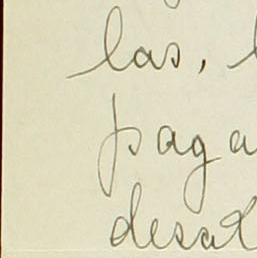 las,
paga
desat